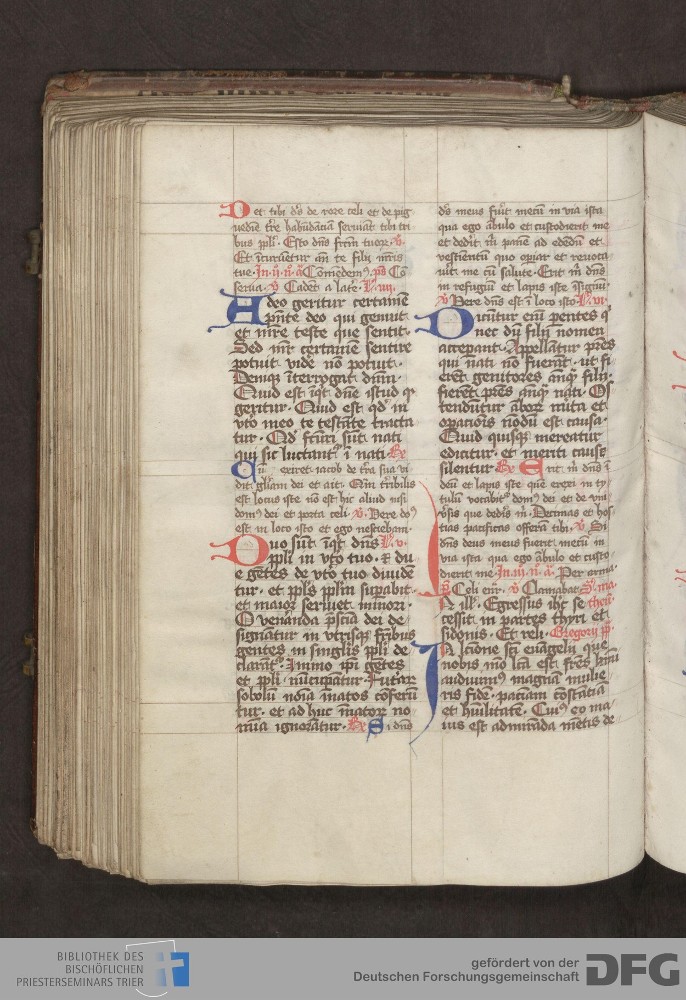 Det tibi ds de rore celi et de pīg
uedine t̄re habūdāciā seruiāt tibi tri
bus ppli. Esto dn̄s frm̄ tuoꝝ. v.
Et īcuruētur an̄ te filij m̄ris
tue. In
serua. v Cadēt a late.
Adeo geritur certamē
pn̄te deo qui gemuit
et m̄re teste que sentit.
Sed mr̄ certamē sentire
potuit vide nō potuit.
Deniqꝫ īterrogat dn̄m.
Quid est īqt dn̄e istud qꝫ
geritur. Quid est qd̓ in
vt̄o meo te testāte tracta
tur. Qd̓ futūri sūt nati
qui sic luctant᷑ ī nati. Rx
Cū exiret iacob de t̄ra sua vi
dit gl̄iam dei et ait. Qm̄ t̓ribilis
est locus iste nō est hic aliud nisi
domꝰ dei et porta celi. v. Vere dn̄s
est in loco isto et ego nesciebam.
Duo sūt īqt dn̄s
ppli in vt̄o tuo. ⁊ du
e gētes de vt̄o tuo diuidē
tur. et ppl̓s pplm̄ supabit.
et maior seruiet minori.
O veneāda p̄sciā dei de
signātur in vtrisqꝫ fr̄ibus
gentes in singlis ppli de
clarāt᷑. Immo ip̄i gētes
et ppli nūcupātur. Futuꝝ
sobolū noīa īnatos cōferū
tur. et ad huc īnatoꝝ no
mīa ignorātur. Rx Si dn̄s
ds̄ meus fūit mecū in via ista
qua ego ābulo et custodierit me
et dedit m̄ panē ad edēdū et
vestientū quo opiar et reuoca
uit me cū salute. Erit m̄ dn̄s
in refugiū et lapis iste ī signū
v Vere dn̄s est ī loco isto.
Dicūtur enī gentes qꝫ
nec dū filij nomen
accepant. Appellātur pr̄es
qui nati nō fuerāt. ut fi
erēt genitores anqꝫ filij.
fierēt pr̄es anqꝫ nati. Os
tendūtur āboꝝ mīta et
opacōis nōdū est causa.
Quid quisqꝫ mereatur
edicatur. et meriti causa
silentur Rx Erit m̄ dn̄s ī
deū et lapis iste quē erexi in ty
tulū vocabit᷑ domꝰ dei et de vni
v̄sis que dedis m̄. Decimas et hos
tias pacificas offerā tibi. v. Si
dn̄s deus meus fuerit mecū in
via ista qua ego ābulo et custo
dierit me. Per arma
v Clamabāt
In ill̄. Egressus ihc̄ se
cessit in partes thyri et
sidonis. Et reli. Gregorij pp̄.
In lcīone sc̄i euāgelij que
nobis mō lc̄a est frēs kmī
audiuimꝰ magnā mulie
ris fidē. paciam cōstāciā
et hūilitatē. Cuiꝰ eo ma
ius est admirāda mētis de
BIBLIOTHEK DES
BISCHÖFLICHEN
PRIESTERSEMINARS TRIER
gefördert von der
Deutschen Forschungsgemeinschaft
DFG